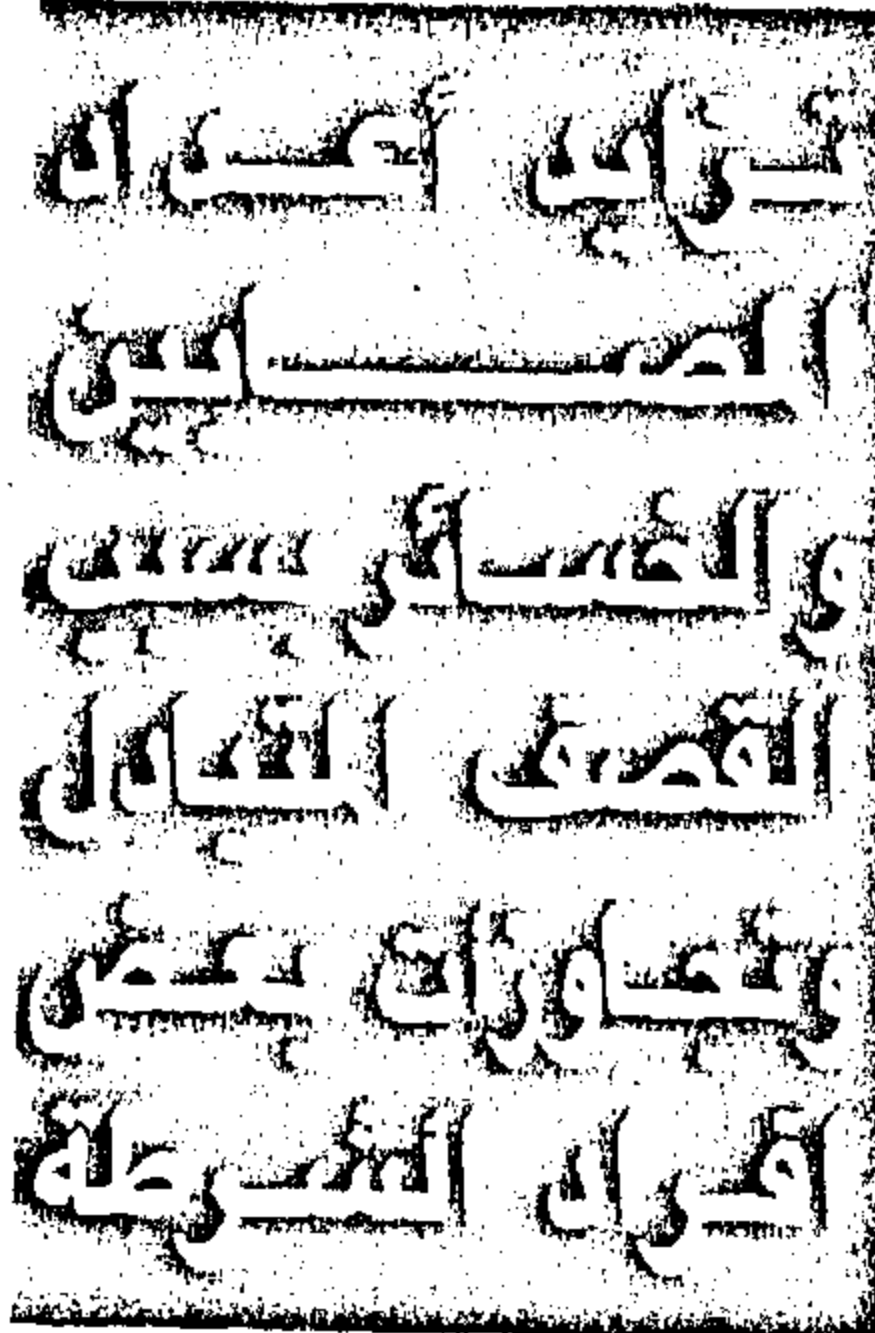 تزايد أعداد
المصابين
والخسائر بسبب
القصف المتبادل
وتجاوزات بعض
أفراد الشرطة